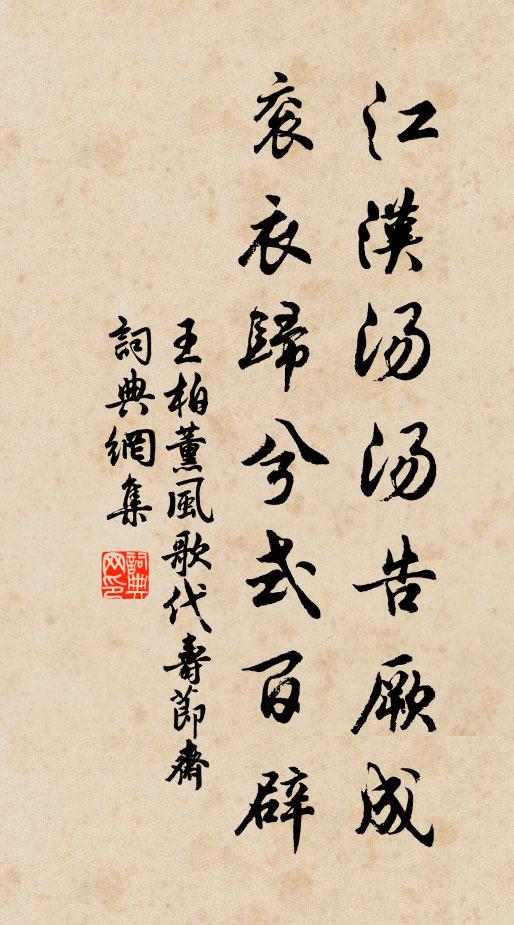 江漢汤汤告厥成
袞衣歸兮式百辟
王柏薰風歌代壽節齋
詞典網集
詞典网印